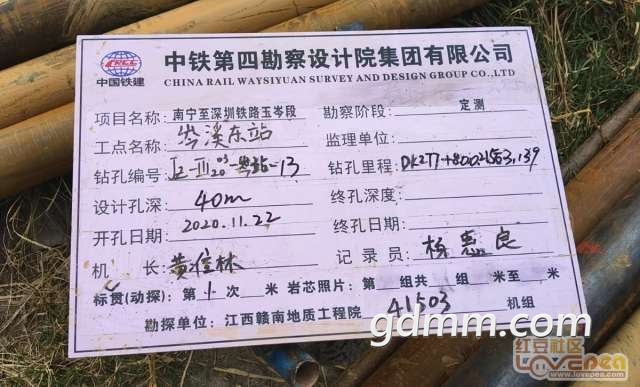 中铁第四勘察设计院集团有限公司
CHINA RAIL WAYSIYUAN SURVEY AND DESIGN GROUP CO.,LTD
中国铁建
项目名称: 南宁至深圳铁路玉岑段 勘察阶段: 定测
工点名称: 岑溪东站 监理单位:
钻孔编号: 钻孔里程:
设计孔深: 40m 终孔深度:
开孔日期: 2020.11.22 终孔日期:
机 长: 黄佳林 记录员: 杨惠良
标贯(动探): 第 1 次 米 岩芯照片: 第 组共 组 米至 米
勘探单位: 江西赣南地质工程院 41503 机组
gdmm.com
红豆社区
LOVEPEA
www.lovepea.com